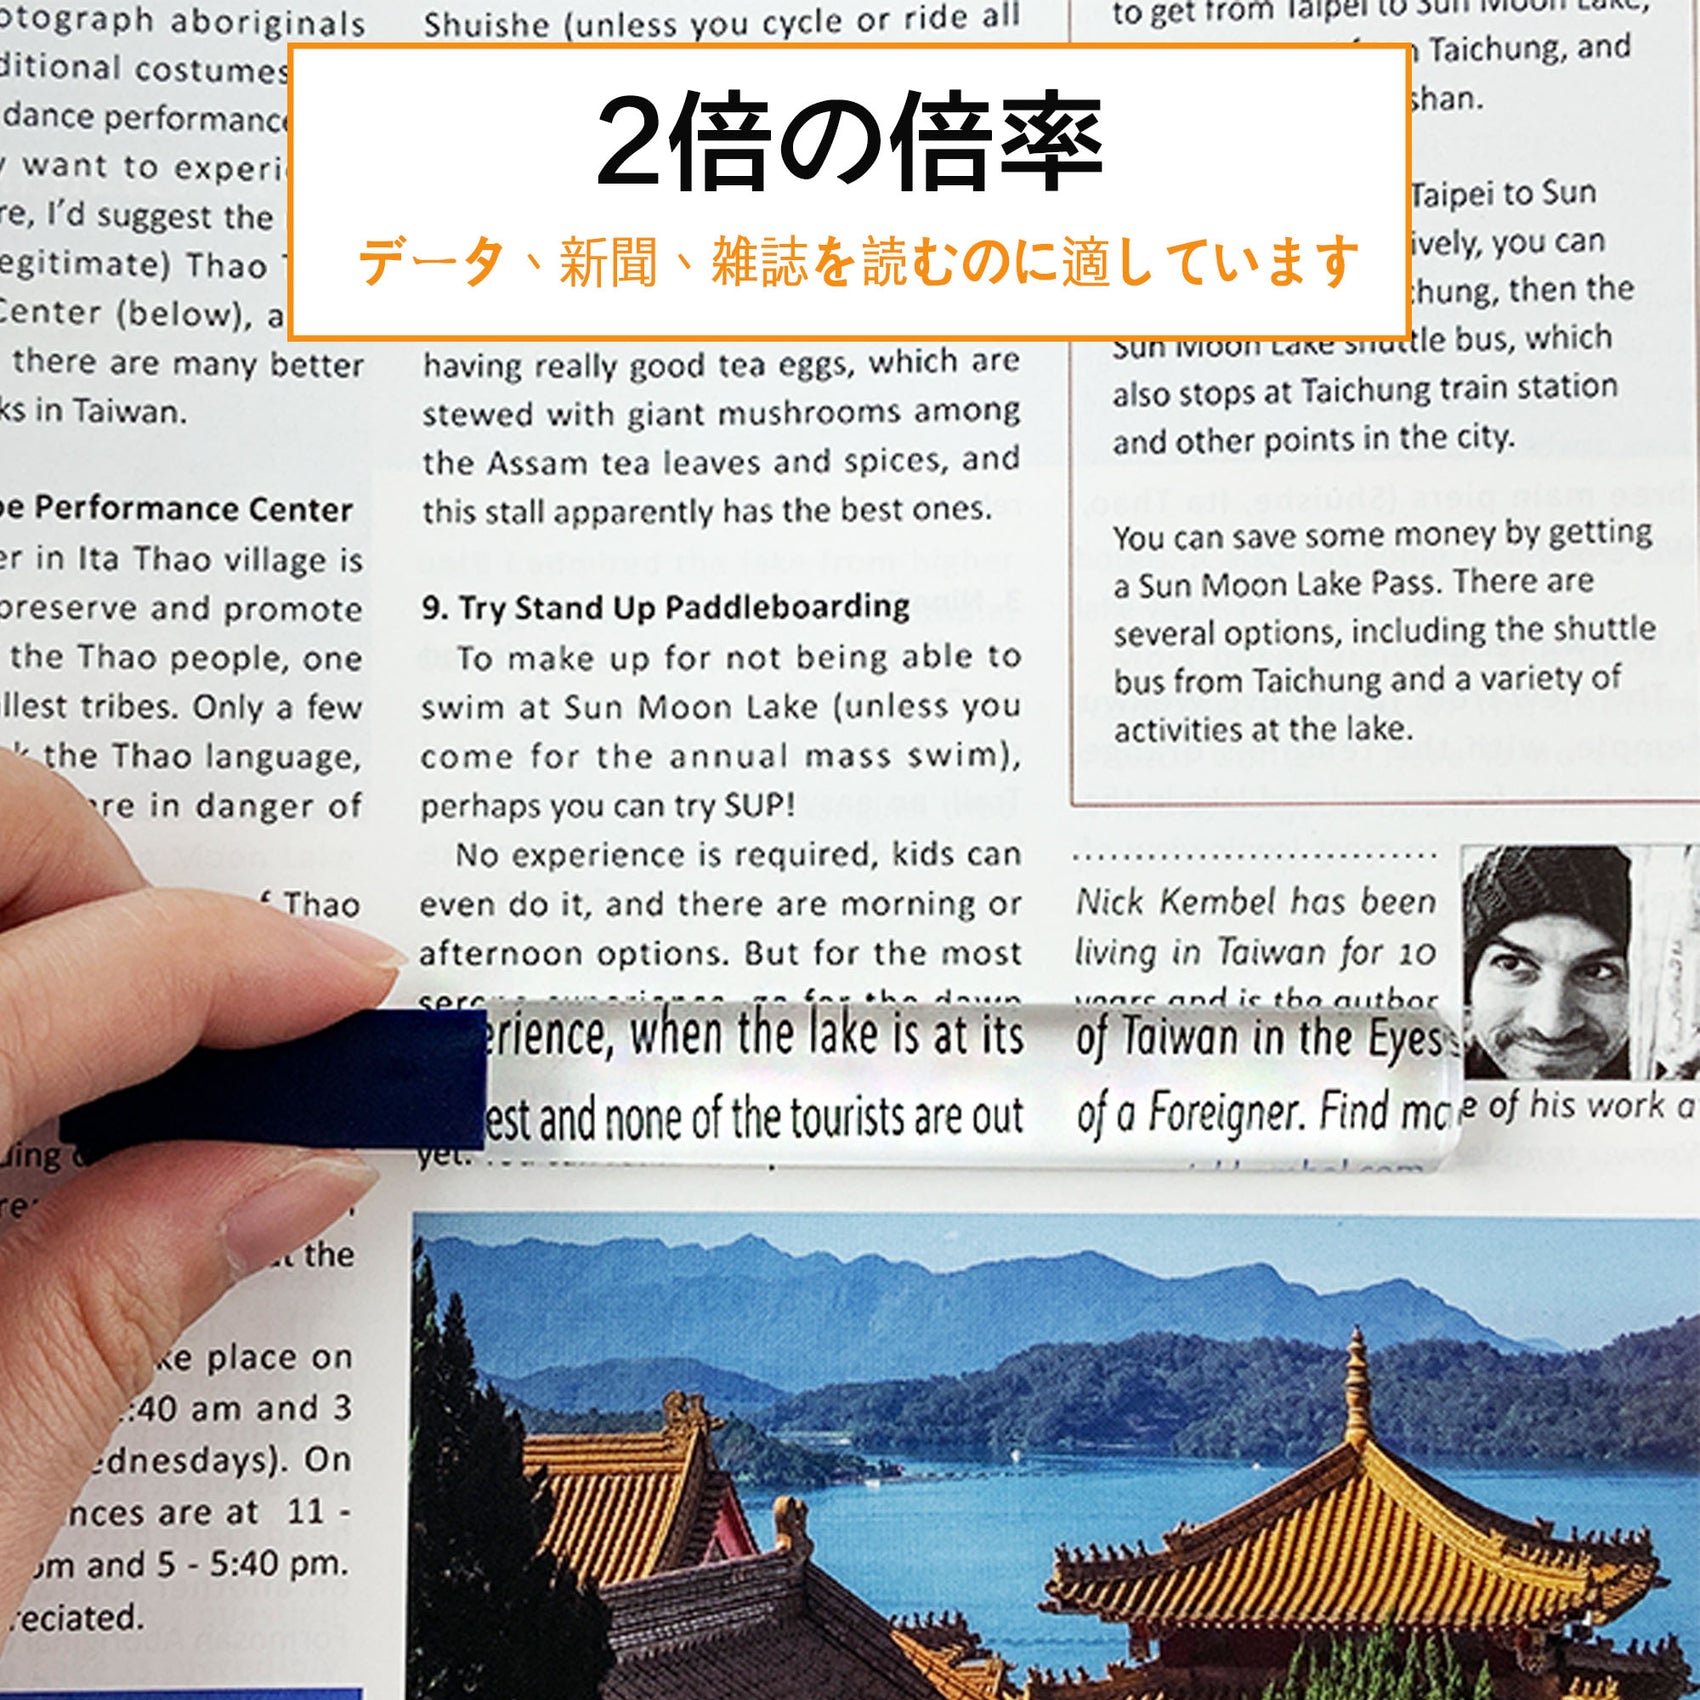 2倍の倍率
データ、新聞、雑誌を読むのに適しています
aboriginals
costumes
dance
want to
I'd suggest the
Thao
(below),
there are many better
in Taiwan.
Performance Center
in Ita Thao village is
preserve and promote
the Thao people, one
tribes. Only a few
the Thao language,
in danger of
Thao
the
place on
:40 am and 3
On
are at 11 -
and 5 - 5:40 pm.
Shuishe (unless you cycle or ride all
having really good tea eggs, which are
stewed with giant mushrooms among
the Assam tea leaves and spices, and
this stall apparently has the best ones.
9. Try Stand Up Paddleboarding
To make up for not being able to
swim at Sun Moon Lake (unless you
come for the annual mass swim),
perhaps you can try SUP!
No experience is required, kids can
even do it, and there are morning or
afternoon options. But for the most
when the lake is at its
and none of the tourists are out
yet.
to get from Taipei to Sun Moon Lake,
Taichung, and
Taipei to Sun
you can
then the
Sun Moon Lake shuttle bus, which
also stops at Taichung train station
and other points in the city.
You can save some money by getting
a Sun Moon Lake Pass. There are
several options, including the shuttle
bus from Taichung and a variety of
activities at the lake.
Nick Kembel has been
living in Taiwan for 10
years and is the author
of Taiwan in the Eyes
of a Foreigner. Find of his work